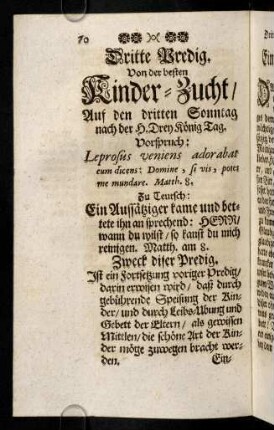 70
Dritte Predig.
Von der besten
Kinder-Zucht/
Auf den dritten Sonntag
nach der H. Drey König Tag.
Vorspruch:
Leprosus veniens adorabat
eum dicens: Domine, si vis, potes
me mundare. Matth. 8.
Zu Teutsch:
Ein Aussätziger kame und bet-
tete ihn an sprechend: HERR/
wann du wilst/ so kanst du mich
reinigen. Matth. am 8.
Zweck diser Predig.
Ist ein Fortsetzung voriger Predig/
darin erwisen wird/ daß durch
gebührende Speisung der Kin-
der/ und durch Leibs-Übung und
Gebett der Eltern/ als gewissen
Mittlen/ die schöne Art der Kin-
der möge zuwegen bracht wer-
den. Ein-